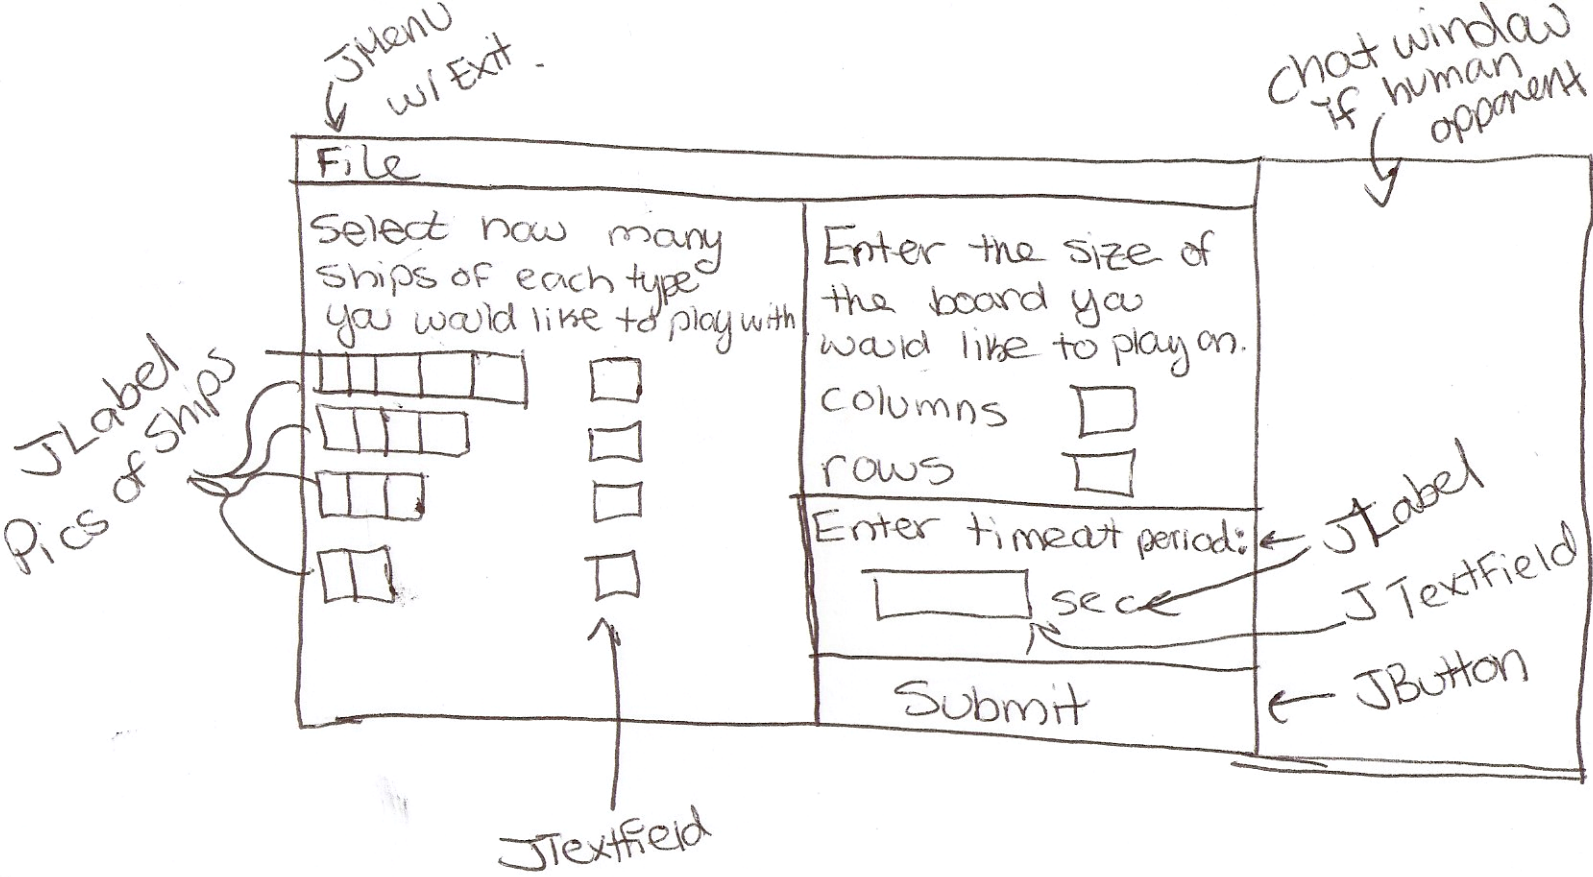 JMenu
w/ Exit.
chat window
if human
opponent
File
Select how many
ships of each type
you would like to play with
Enter the size of
the board you
would like to play on.
columns
rows
JLabel
Pics of Ships
Enter timeout period:
sec
JLabel
JTextField
Submit
JButton
JTextField